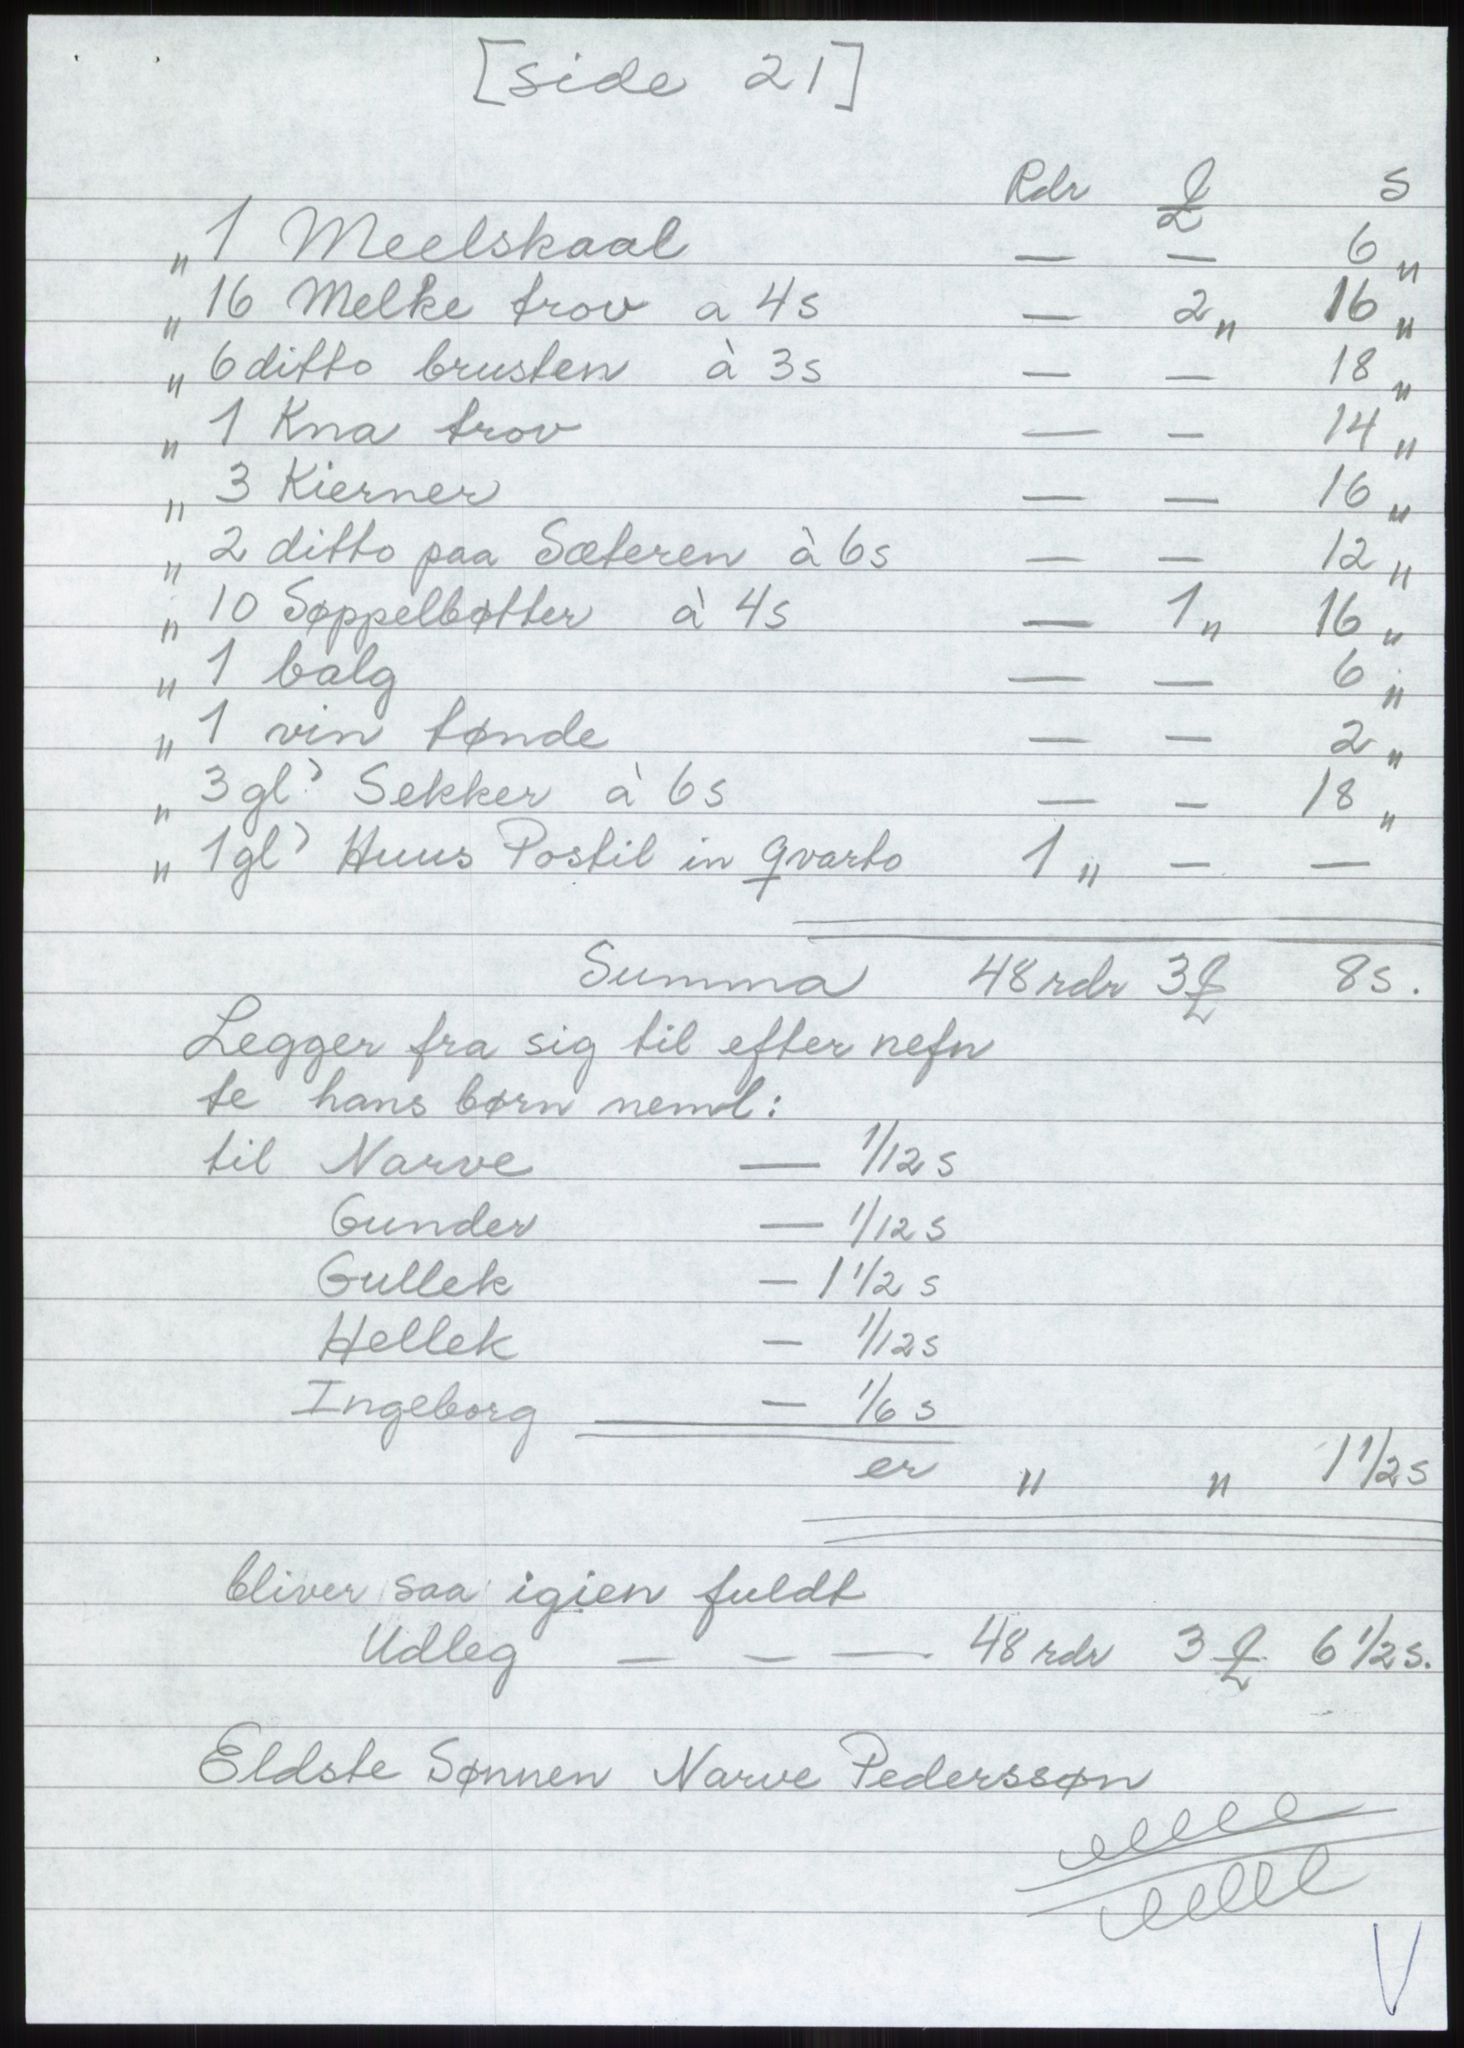 [side 21]
Rdr ℔ s
„ 1 Meelskaal — — 6 „
„ 16 Melke trov a 4s — 2 „ 16 „
„ 6 ditto brusten à 3s — — 18 „
„ 1 Kna trov — — 14 „
„ 3 Kierner — — 16 „
„ 2 ditto paa Sæteren à 6s — — 12 „
„ 10 Søppelbøtter à 4s — 1 „ 16 „
„ 1 balg — — 6 „
„ 1 vin tønde — — 2 „
„ 3 gl' Sekker à 6s — — 18 „
„ 1 gl' Huus Postil in qvarto 1 „ — —
Summa 48 rdr 3 ℔ 8 s.
Legger fra sig til efter nefn
te hans børn neml:
til Narve — 1/12 s
Gunder — 1/12 s
Gullek — 1 1/2 s
Hellek — 1/12 s
Ingeborg — 1/6 s
er „ „ 1 1/2 s
bliver saa igien fuldt
Udleg — — — 48 rdr 3 ℔ 6 1/2 s.
Eldste Sønnen Narve Pederssøn